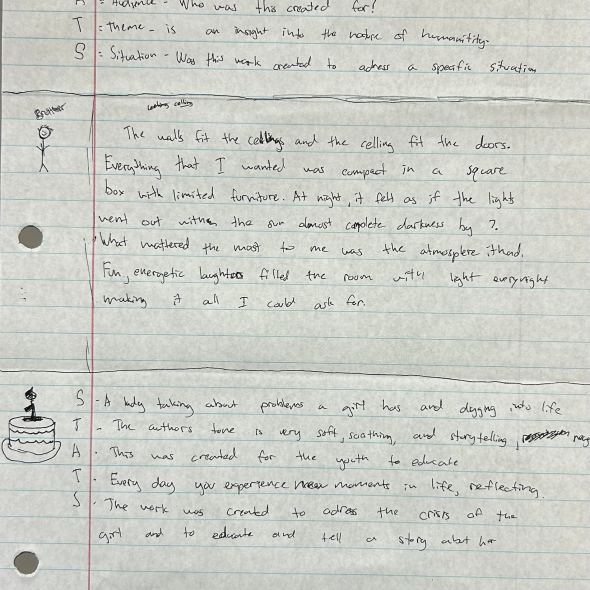 A = Audience - Who was this created for?
T = theme - is an insight into the nature of humanitity.
S = Situation - Was this work created to adress a specific situation
Brother
The walls fit the cellings and the celling fit the doors.
Everything that I wanted was compact in a square
box with limited furniture. At night, it felt as if the lights
went out when the sun almost complete darkness by 7.
What mattered the most to me was the atmosphere it had.
Fun, energetic laughters filled the room with light everynight
making it all I could ask for.
S - A lady talking about problems a girl has and digging into life
T - The authors tone is very soft, soothing, and storytelling
A - This was created for the youth to educate
T - Every day you experience new moments in life, reflecting.
S - The work was created to adress the crisis of the
girl and to educate and tell a story about her